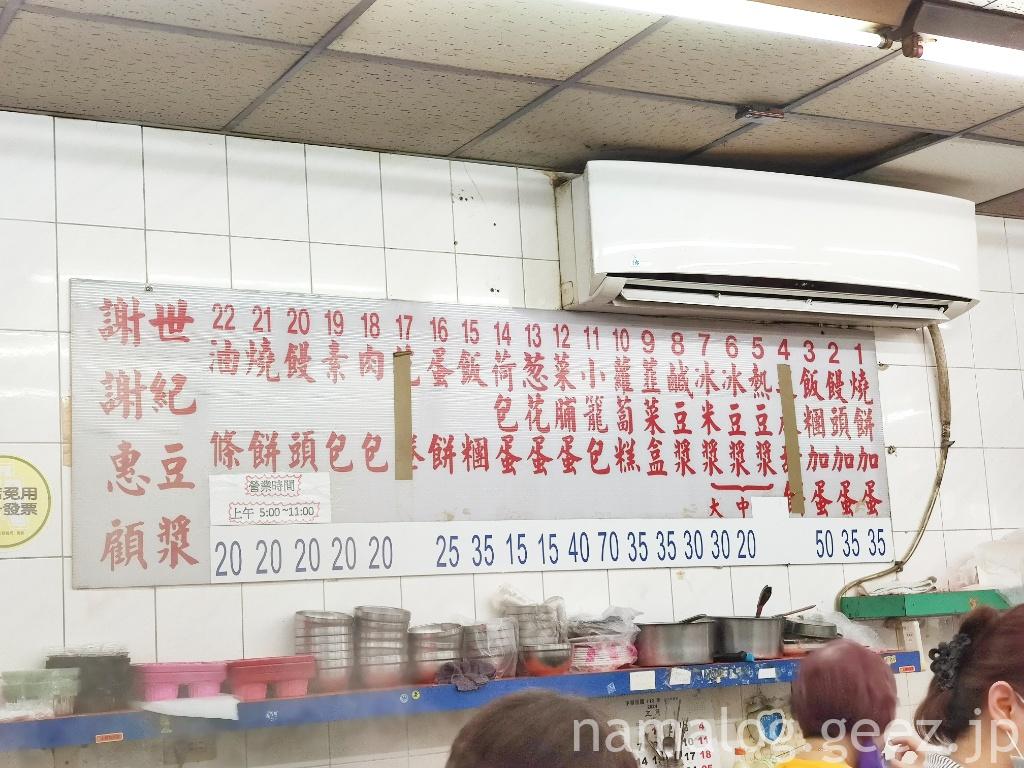 世紀豆漿
謝謝惠顧
1 燒餅加蛋 35
2 饅頭加蛋 35
3 飯糰加蛋 50
4
5 熱豆漿
6 冰豆漿
中 20
大 30
7 冰米漿 30
8 鹹豆漿 35
9 韮菜盒 35
10 蘿蔔糕 70
11 小籠包 40
12 菜脯蛋 15
13 葱花蛋 15
14 荷包蛋 35
15 飯糰 25
16 蛋餅
17
18 肉包 20
19 素包 20
20 饅頭 20
21 燒餅 20
22 油條 20
營業時間
上午 5:00~11:00
免用
發票
namalog.geez.jp